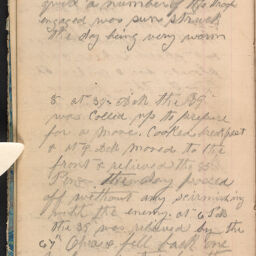 quite a number of the troops
engaged was sun struck
the day being very warm
8 at 3½ oclk the 39"
was called up to prepare
for a move. Cooked breakfast
& at 7 oclk moved to the
front & relieved the 85"
Penn. the day passed
off without any scirmishing
with the enemy. at 6 oclk
the 39 was relieved by the
67" Ohio & fell back one